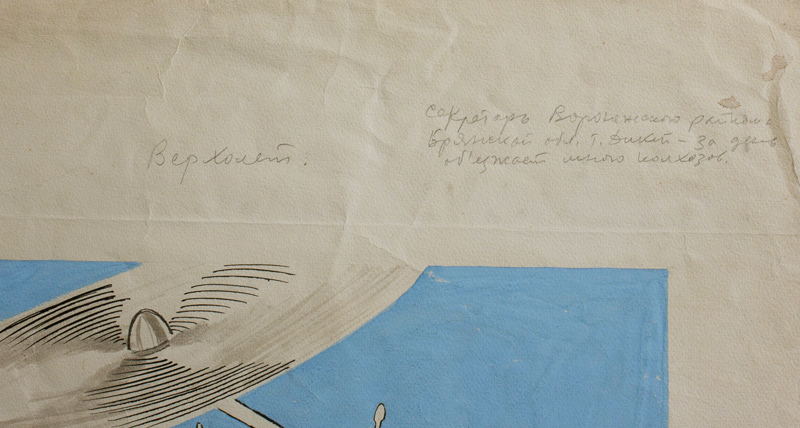 Верхолет.
Секретарь Воронежского райкома
Брянской обл. т. – за день
объезжает много колхозов.